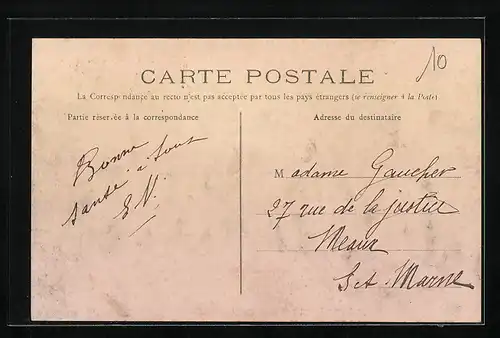 10
CARTE POSTALE
La Correspondance au recto n'est pas acceptée par tous les pays étrangers (se renseigner à la Poste)
Partie réservée à la correspondance
Bonne
santé à tout
E.V.
Adresse du destinataire
Madame Gaucher
27 rue de la justice
Meaux
Set Marne